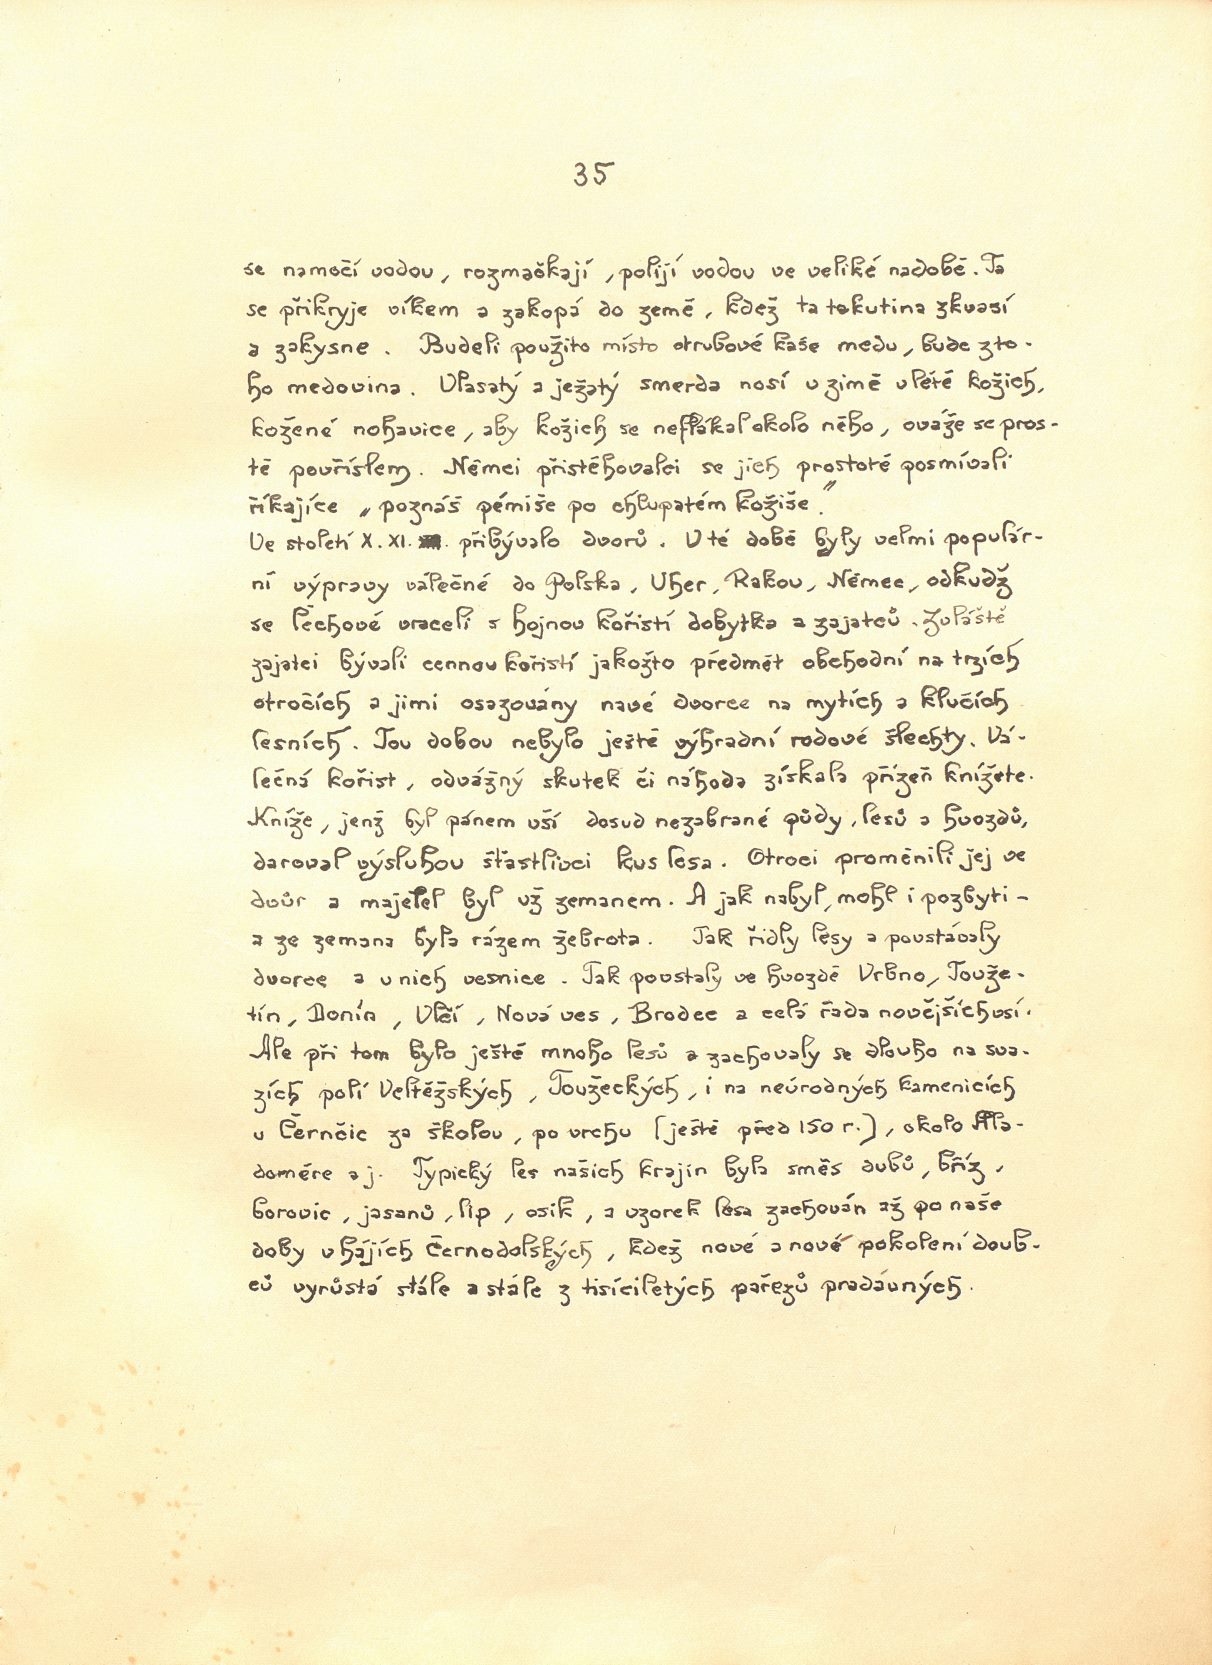 35
se namočí vodou, rozmačkají, polijí vodou ve veliké nadobě. Ta
se přikryje víkem a zakopá do země, kdež ta tekutina zkvasí
a zakysne. Budeli použito místo otrubové kaše medu, bude z to-
ho medovina. Vlasatý a ježatý smerda nosí v zimě v létě kožich,
kožené nohavice, aby kožich se neflákal okolo něho, ováže se pros-
tě povříslem. Němci přistěhovalci se jich prostotě posmívali
říkajíce „poznáš pémiše po chlupatém kožiše."
Ve století X. XI. přibývalo dvorů. V té době byly velmi populár-
ní výpravy válečné do Polska, Uher, Rakou, Němec, odkudž
se lechové vraceli s hojnou kořistí dobytka a zajatců. Zvláště
zajatci bývali cennou kořistí jakožto předmět obchodní na trzích
otročích a jimi osazovány nové dvorce na mytích a klučích
lesních. Tou dobou nebylo ještě výhradní rodové šlechty. Vá-
lečná kořist, odvážný skutek či náhoda získala přízeň knížete.
Kníže, jenž byl pánem vší dosud nezabrané půdy, lesů a hvozdů,
daroval výsluhou šťastlivci kus lesa. Otroci proměnili jej ve
dvůr a majetel byl už zemanem. A jak nabyl, mohl i pozbyti –
a ze zemana byla rázem žebrota. Tak řidly lesy a povstávaly
dvorce a u nich vesnice. Tak povstaly ve hvozdě Vrbno, Touže-
tín, Donín, Vlčí, Nová ves, Brodec a celá řada novějších vsí.
Ale při tom bylo ještě mnoho lesů a zachovaly se dlouho na sva-
zích polí Veltěžských, Toužeckých, i na neúrodných kamenicích
u Černčic za školou, po vrchu (ještě před 150 r.), okolo Mla-
doměre a j. Typický les našich krajin byla směs dubů, bříz,
borovic, jasanů, lip, osik, a vzorek lesa zachován až po naše
doby v hájích Černodolských, kdež nové a nové pokolení doub-
ců vyrůstá stále a stále z tisíciletých pařezů pradávných.